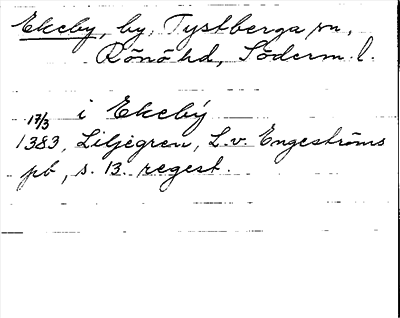 Ekeby, by, Tystberga sn,
Rönö hd, Söderm. l.
i Ekebÿ
17/3
1383, Liljegren, L. v. Engeströms
pb, s. 13. regest.